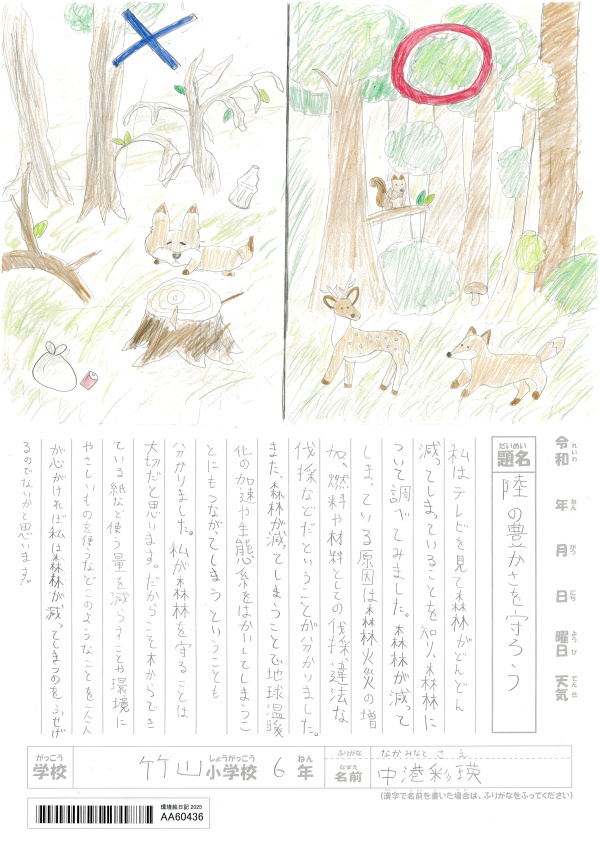 令和 年 月 日 曜日 天気
れいわ ねん がつ にち ようび てんき
だいめい
題名
陸の豊かさを守ろう
私はテレビを見て森林がどんどん
減ってしまっていることを知り、森林に
ついて調べてみました。森林が減って
しまっている原因は森林火災の増
加、燃料や材料としての伐採、違法な
伐採などだということが分かりました。
また、森林が減ってしまうことで地球温暖
化の加速や生態系をはかいしてしまうこ
とにもつながってしまうということも
分かりました。私が森林を守ることは
大切だと思います。だからこそ木からでき
ている紙など使う量を減らすことや環境に
やさしいものを使うなどこのようなことを一人一人
が心がければ私は森林が減ってしまうのをふせげ
るのでないかと思います。
がっこう しょうがっこう ねん
学校 竹山小学校 6年
ふりがな なかみなと さえ
なまえ
名前 中港彩瑛
(漢字で名前を書いた場合は、ふりがなをふってください)
環境絵日記 2025
AA60436